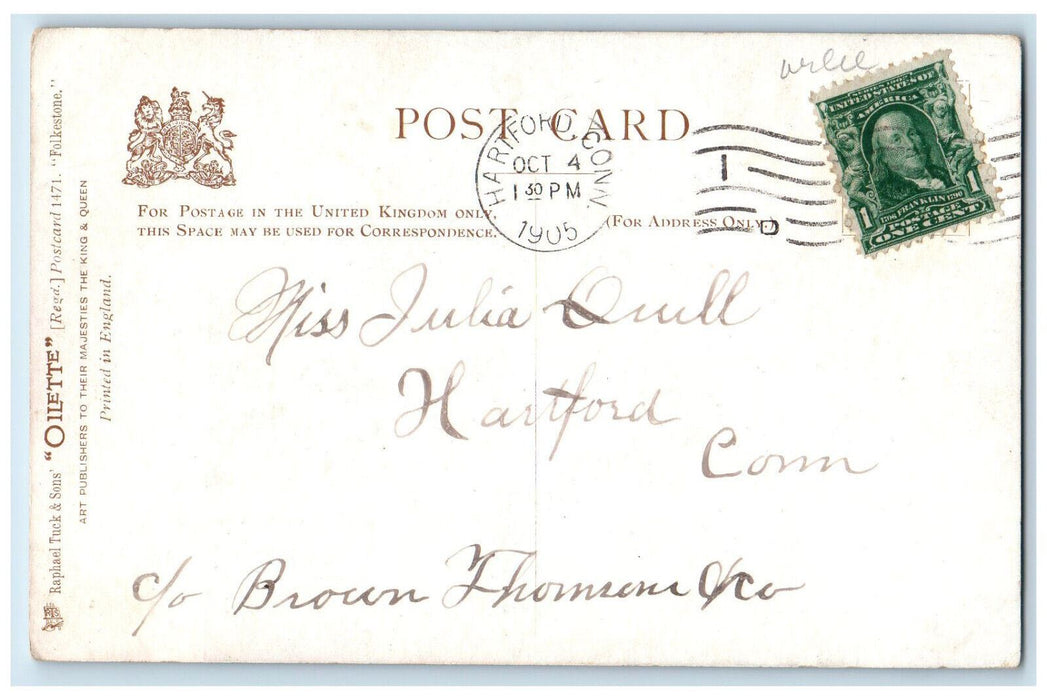 POST CARD
FOR POSTAGE IN THE UNITED KINGDOM ONLY,
THIS SPACE MAY BE USED FOR CORRESPONDENCE.
(FOR ADDRESS ONLY.)
HARTFORD, CONN
OCT 4
1 30 PM
1905
1
D
UNITED STATES OF
AMERICA
1706 FRANKLIN 1790
1 1
POSTAGE
ONE CENT
Miss Julia Quill
Hartford
Conn
c/o Brown Thomson & Co
Raphael Tuck & Sons' "OILETTE" [Regd.] Postcard 1471. "Folkestone."
ART PUBLISHERS TO THEIR MAJESTIES THE KING & QUEEN
Printed in England.